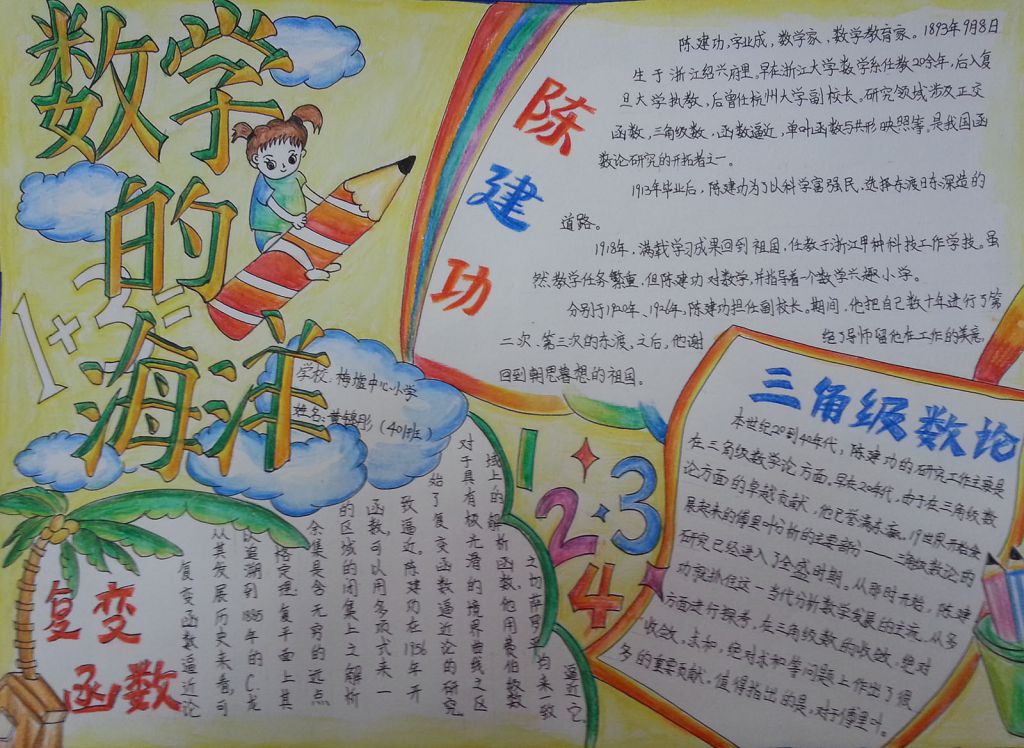 数学
的
海洋
1+2=
学校：梅墟中心小学
姓名：黄锦彤（401班）
陈
建
功
陈建功，字业成，数学家，数学教育家。1893年9月8日
生于浙江绍兴府里，早在浙江大学数学系任教20余年，后入复
旦大学执教，后曾任杭州大学副校长。研究领域涉及正交
函数，三角级数，函数逼近，单叶函数与共形映照等。是我国函
数论研究的开拓者之一。
1913年毕业后，陈建功为了以科学富强民，选择东渡日本深造的
道路。
1918年，满载学习成果回到祖国，任教于浙江甲种科技工作学技。虽
然教学任务繁重，但陈建功对数学，并指导着一个数学兴趣小学。
分别于1920年、1926年，陈建功担任副校长。期间，他把自己数十年进行了第
二次、第三次的东渡。之后，他谢
绝了导师留他在工作的美意，
回到朝思暮想的祖国。
三角级数论
本世纪20到40年代，陈建功的研究工作主要是
在三角级数学论方面。早在20年代，由于在三角级数
论方面的卓越贡献，他已誉满东瀛。19世界开始发
展起来的傅里叶分析的主要部分——三角级数论的
研究已经进入了全盛时期。从那时开始，陈建
功就抓住这一当代分析数学发展的主流，从多
方面进行探考，在三角级数的收敛，绝对
收敛，求和，绝对求和等问题上作出了很
多的重要贡献。值得指出的是，对于傅里叶。
1
2
3
4
复变
函数
复变函数逼近论
从其发展历史来看，可
以追溯到1885年的C.龙
格定理：复平面上其
余集是含无穷的远点
的区域的闭集上之解析
函数，可以用多项式来一
致逼近。陈建功在1956年开
始了复变函数逼近论的研究
对于具有极光滑的境界曲线之区
域上的解析函数，他用费伯级数
之切萨罗平均来一致
逼近它。